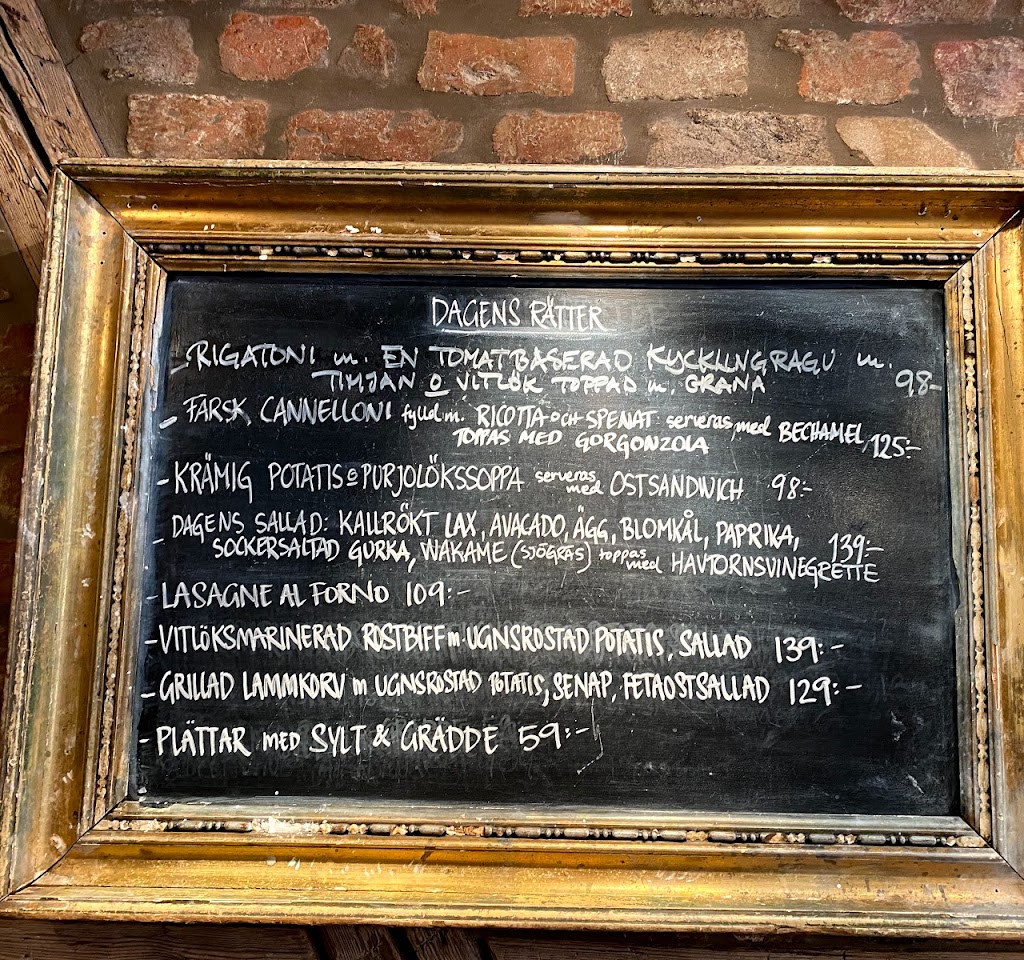 DAGENS RÄTTER
- RIGATONI m. EN TOMATBASERAD KYCKLINGRAGU m.
TIMJAN o VITLÖK TOPPAD m. GRANA 98-
- FÄRSK CANNELLONI fylld m. RICOTTA och SPENAT serveras med BECHAMEL,
TOPPAS MED GORGONZOLA 125:-
- KRÄMIG POTATIS o PURJOLÖKSSOPPA serveras med OSTSANDWICH 98:-
- DAGENS SALLAD: KALLRÖKT LAX, AVACADO, ÄGG, BLOMKÅL, PAPRIKA,
SOCKERSALTAD GURKA, WAKAME (SJÖGRÄS) toppas med HAVTORNSVINEGRETTE 139:-
- LASAGNE AL FORNO 109:-
- VITLÖKSMARINERAD ROSTBIFF m UGNSROSTAD POTATIS, SALLAD 139:-
- GRILLAD LAMMKORV m UGNSROSTAD POTATIS, SENAP, FETAOSTSALLAD 129:-
- PLÄTTAR MED SYLT & GRÄDDE 59:-